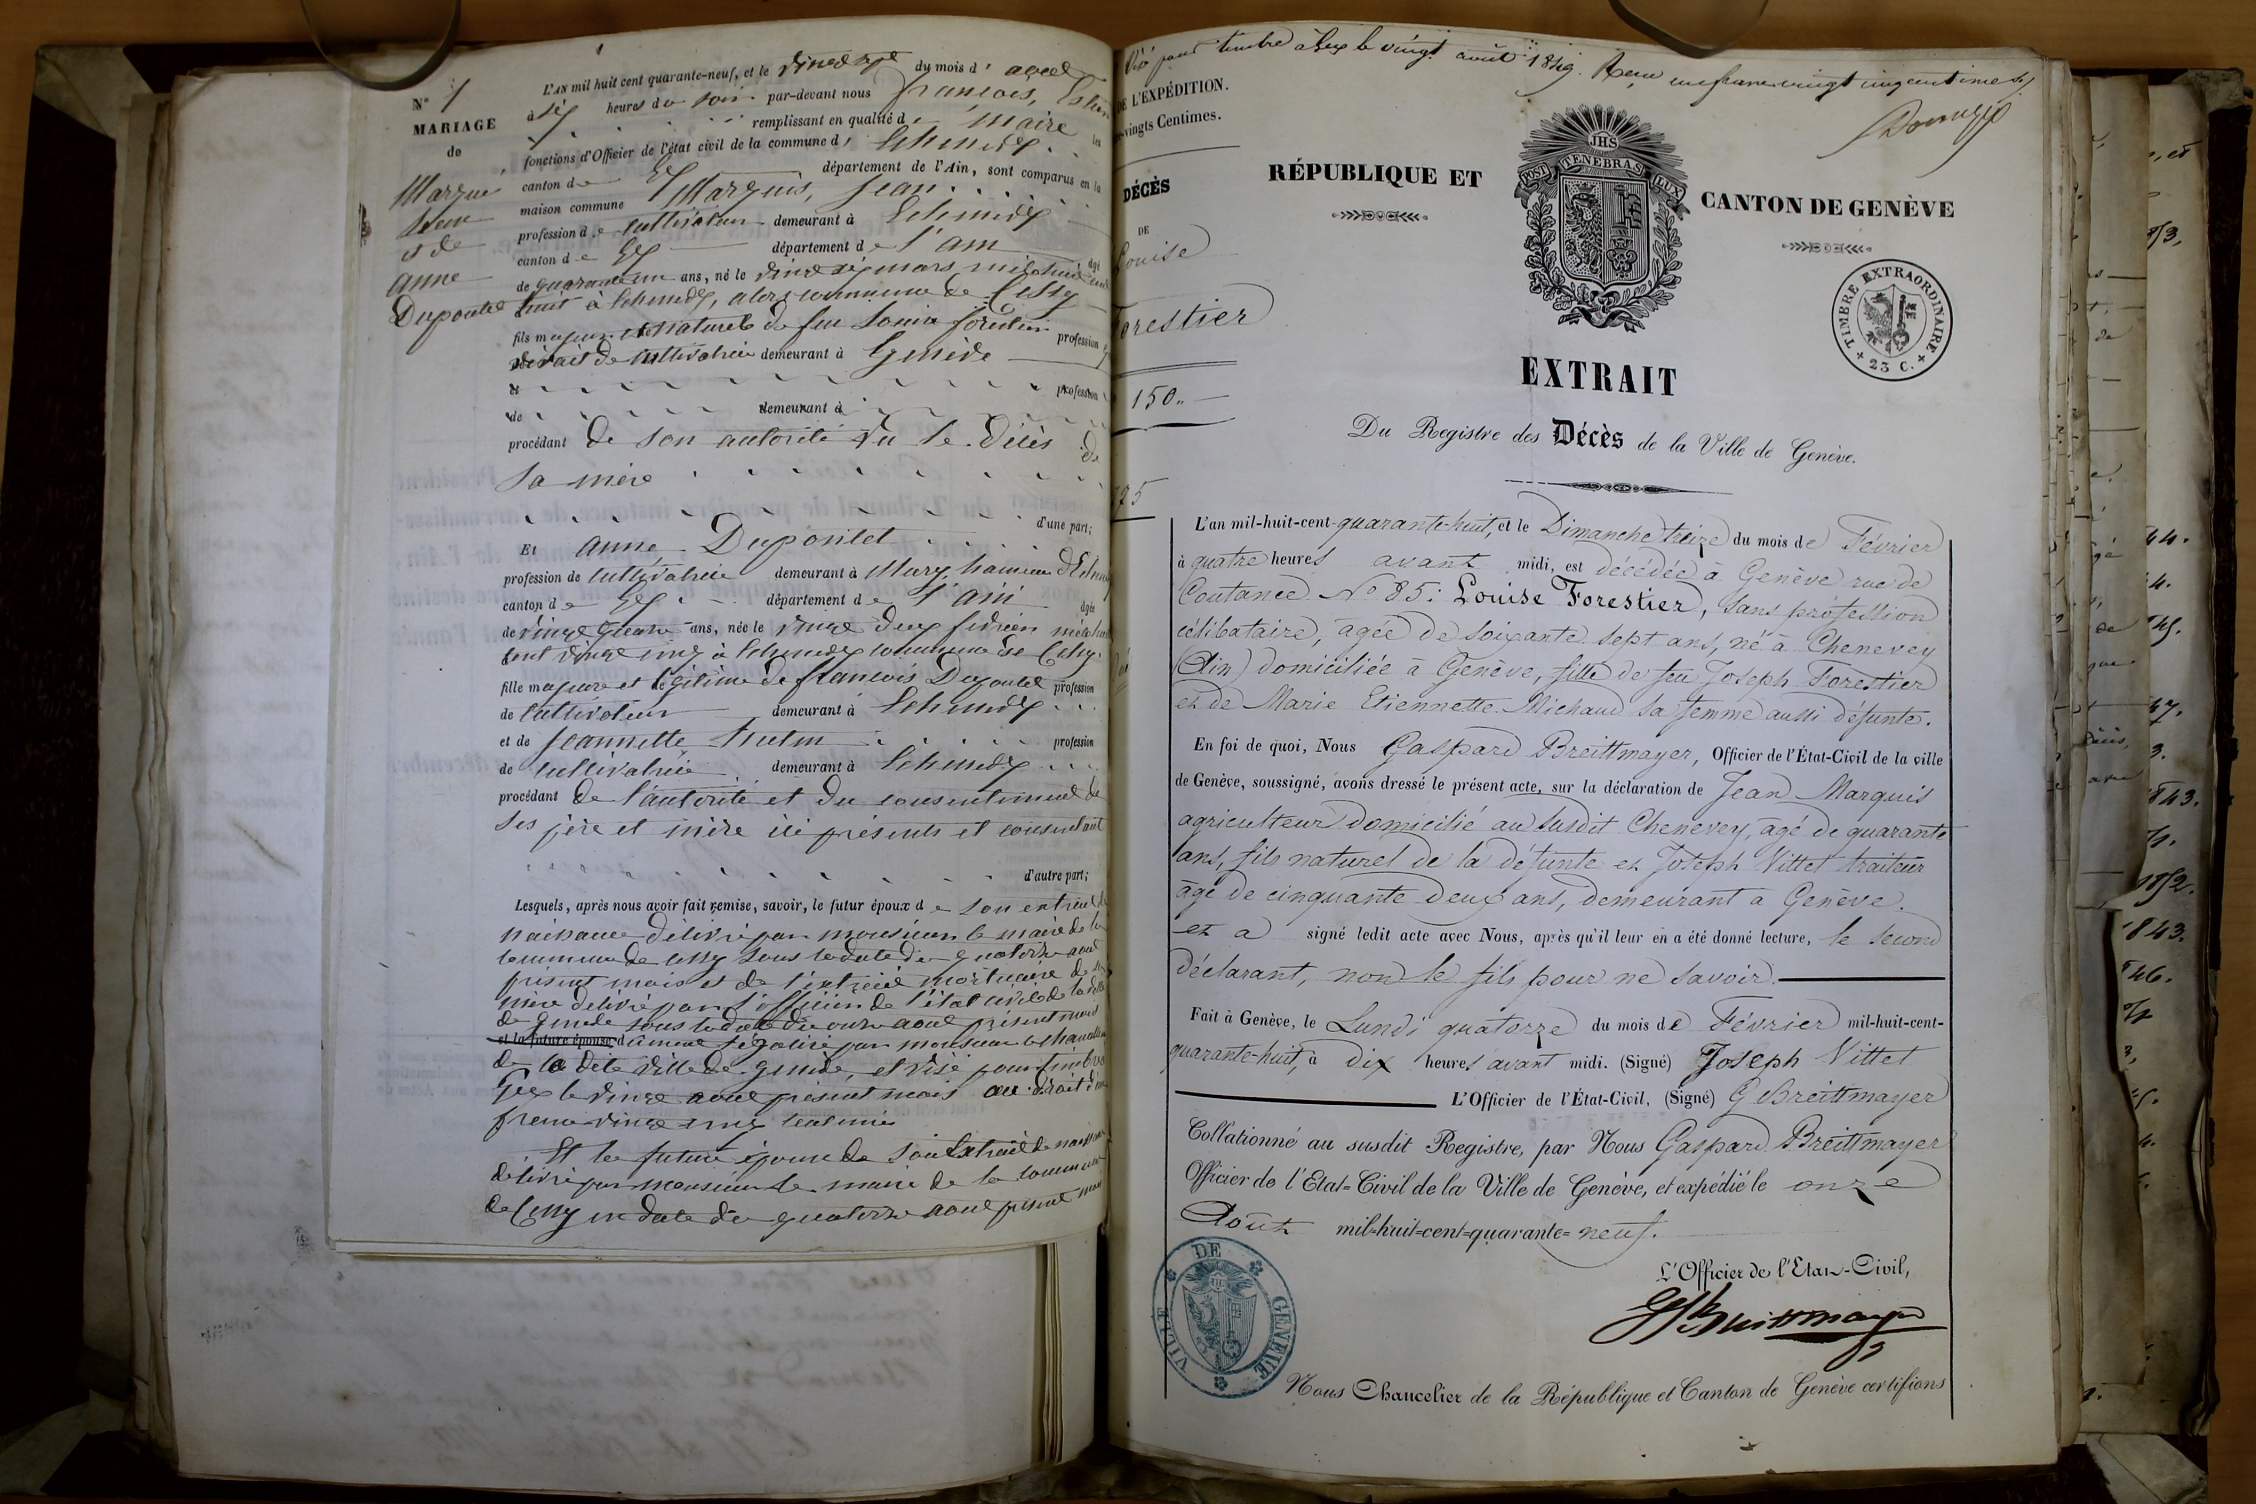 N° 7
MARIAGE
de
Marquis
Jean
et de
anne
Dupontet
L'AN mil huit cent quarante-neuf, et le vingt sept du mois d' aout
à six heures du soir par-devant nous françois,
remplissant en qualité de maire les
fonctions d'Officier de l'état civil de la commune d'Echenevex
canton de Gex département de l'Ain, sont comparus en la
maison commune Marquis, Jean
profession de cultivateur demeurant à Echenevex
canton de Gex département de l'ain âgé
de quarante un ans, né le vingt six mars mil huit cent
huit à Echenevex, alors commune de Cessy
fils majeur et naturel de feu Louise forestier profession
vivait de cultivatrice demeurant à Genève
et profession
de demeurant à
procédant de son autorité vu le décès de
sa mère
d'une part;
Et anne Dupontet
profession de cultivatrice demeurant à Mury, hameau d'Echenevex
canton de Gex département de l'ain âgée
de vingt quatre ans, née le vingt deux février mil huit
cent vingt cinq à Echenevex commune de Cessy
fille majeure et légitime de françois Dupontet profession
de cultivateur demeurant à Echenevex
et de Jeannette profession
de cultivatrice demeurant à Echenevex
procédant de l'autorité et du consentement de
ses père et mère ici présents et consentant
d'autre part;
Lesquels, après nous avoir fait remise, savoir, le futur époux de son extrait de
naissance délivré par monsieur le maire de la
commune de Cessy sous la date du quatorze aout
présent mois et de l'extrait mortuaire de sa
mère délivré par l'officier de l'état civil de la ville
de Genève sous la date du onze aout présent mois
et la future épouse dûment légalisé par monsieur le chancelier
de la dite ville de Genève, et visé pour timbre à
Gex le vingt aout présent mois au droit d'un
franc vingt cinq centimes
Et la future épouse de son extrait de naissance
délivré par monsieur le maire de la commune
de Cessy en date du quatorze aout présent mois
Visé pour timbre à Gex le vingt août 1849. Reçu un franc vingt cinq centimes
DE L'EXPÉDITION.
-vingts Centimes.
DÉCÈS
DE
Louise
Forestier
150.
25
RÉPUBLIQUE ET
CANTON DE GENÈVE
JHS
POST TENEBRAS LUX
TIMBRE EXTRAORDINAIRE
23 C.
EXTRAIT
Du Registre des Décès de la Ville de Genève.
L'an mil-huit-cent-quarante-huit, et le Dimanche treize du mois de Février
à quatre heures avant midi, est décédée à Genève rue de
Coutance N° 85: Louise Forestier, sans profession
célibataire, âgée de soixante sept ans, né à Chenevey
(Ain) domiciliée à Genève, fille de feu Joseph Forestier
et de Marie Etiennette Michaud sa femme aussi défunte.
En foi de quoi, Nous Gaspard Breittmayer, Officier de l'État-Civil de la ville
de Genève, soussigné, avons dressé le présent acte, sur la déclaration de Jean Marquis
agriculteur domicilié au susdit Chenevey, âgé de quarante
ans, fils naturel de la défunte et Joseph Vittet traiteur
âgé de cinquante deux ans, demeurant à Genève.
et a signé ledit acte avec Nous, après qu'il leur en a été donné lecture, le second
déclarant, non le fils pour ne savoir.
Fait à Genève, le Lundi quatorze du mois de Février mil-huit-cent-
quarante-huit, à dix heures avant midi. (Signé) Joseph Vittet
L'Officier de l'État-Civil, (Signé) G Breittmayer
Collationné au susdit Registre, par Nous Gaspard Breittmayer
Officier de l'Etat=Civil de la Ville de Genève, et expédié le onze
Août mil=huit=cent=quarante= neuf.
L'Officier de l'Etat-Civil,
G Breittmayer
VILLE DE GENEVE
Nous Chancelier de la République et Canton de Genève certifions